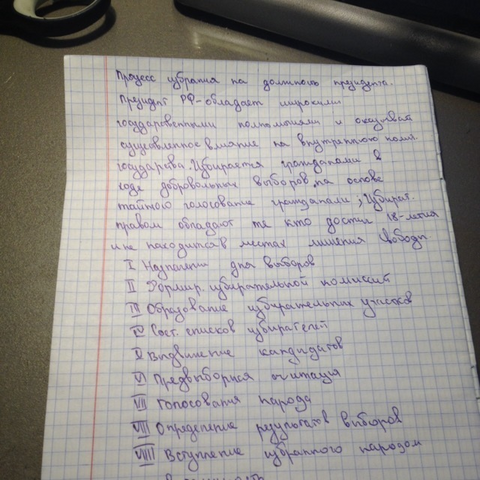 Процесс избрания на должность президента.
Президент РФ-обладает широкими
государственными полномочиями и оказывает
существенное влияние на внутреннюю полит.
государства. Избирается гражданами в
ходе добровольных выборов, на основе
тайного голосование гражданами, Избират.
правом обладают те кто достиг 18-летия
и не находится в местах лишения свободы
I Назначения дня выборов
II Формир. избирательной комиссий
III Образование избирательных участков
IV Сост. списков избирателей
V Выдвижение кандидатов
VI Предвыборная агитация
VII Голосования народа
VIII Определение результатов выборов
VIIII Вступление избранного народом